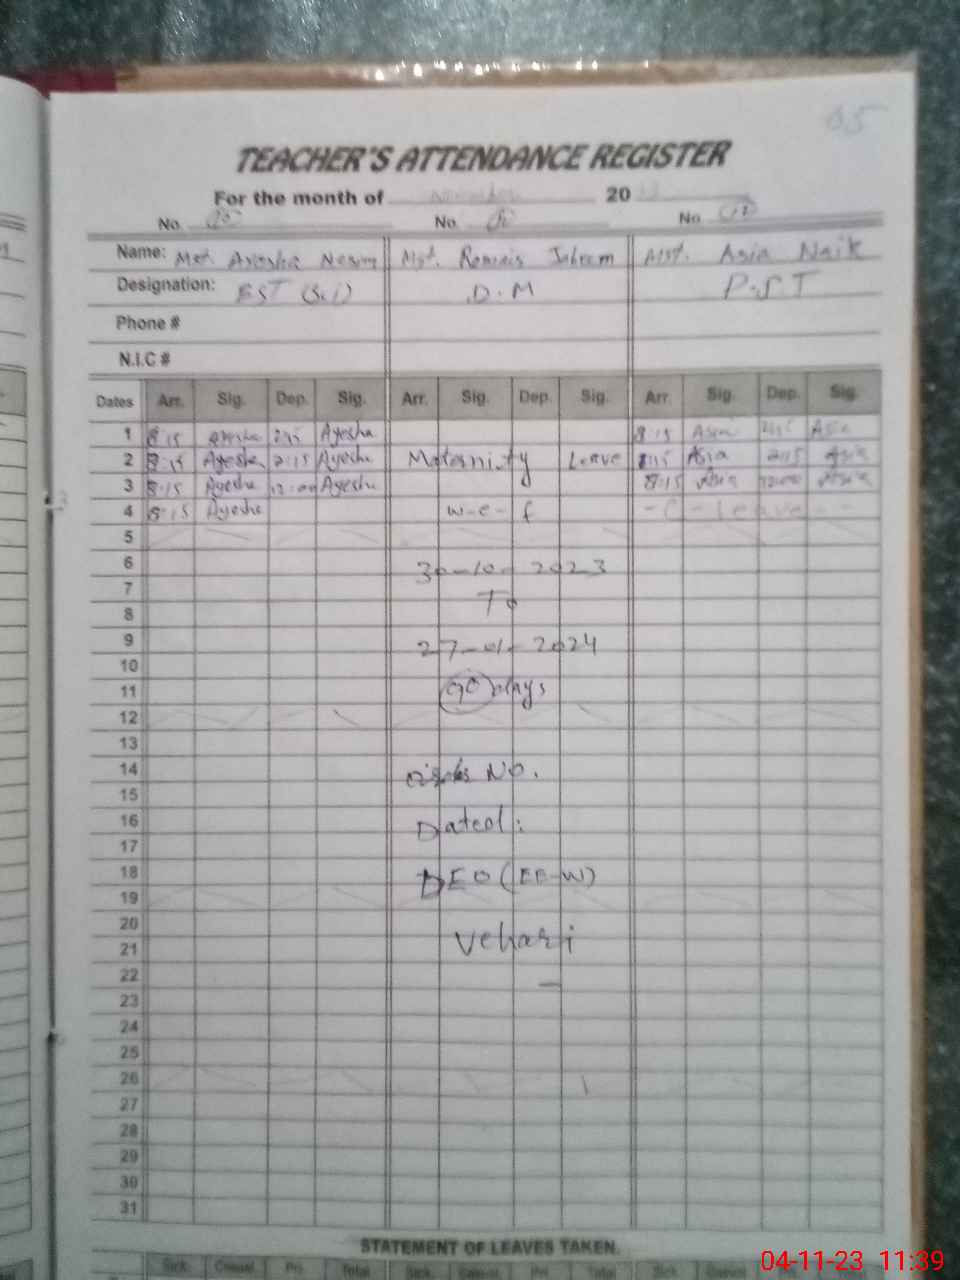 TEACHER'S ATTENDANCE REGISTER
For the month of November 20
No. No. No.
Name: Mst. Ayesha Mst. Mst. Asia
Designation: EST (Sci) D.M P.S.T
Phone #
N.I.C #
Dates Arr. Sig. Dep. Sig. Arr. Sig. Dep. Sig. Arr. Sig. Dep. Sig.
1 8:15 Ayesha 2:15 Ayesha 8:15 Asia 2:15 Asia
2 8:15 Ayesha 2:15 Ayesha Maternity Leave 8:15 Asia 2:15 Asia
3 8:15 Ayesha 12:00 Ayesha 8:15 Asia 12:00 Asia
4 8:15 Ayesha w-e-f - C - Leave - -
5
6 30-10-2023
7
8 To
9 27-01-2024
10
11 90 days
12
13
14 No.
15
16 Dated:
17
18 DEO (EE-W)
19
20
21 Vehari
22
23
24
25
26
27
28
29
30
31
STATEMENT OF LEAVES TAKEN.
Sick. Casual. Pri. Total Sick. Casual. Pri. Total Sick. Casual.
04-11-23 11:39